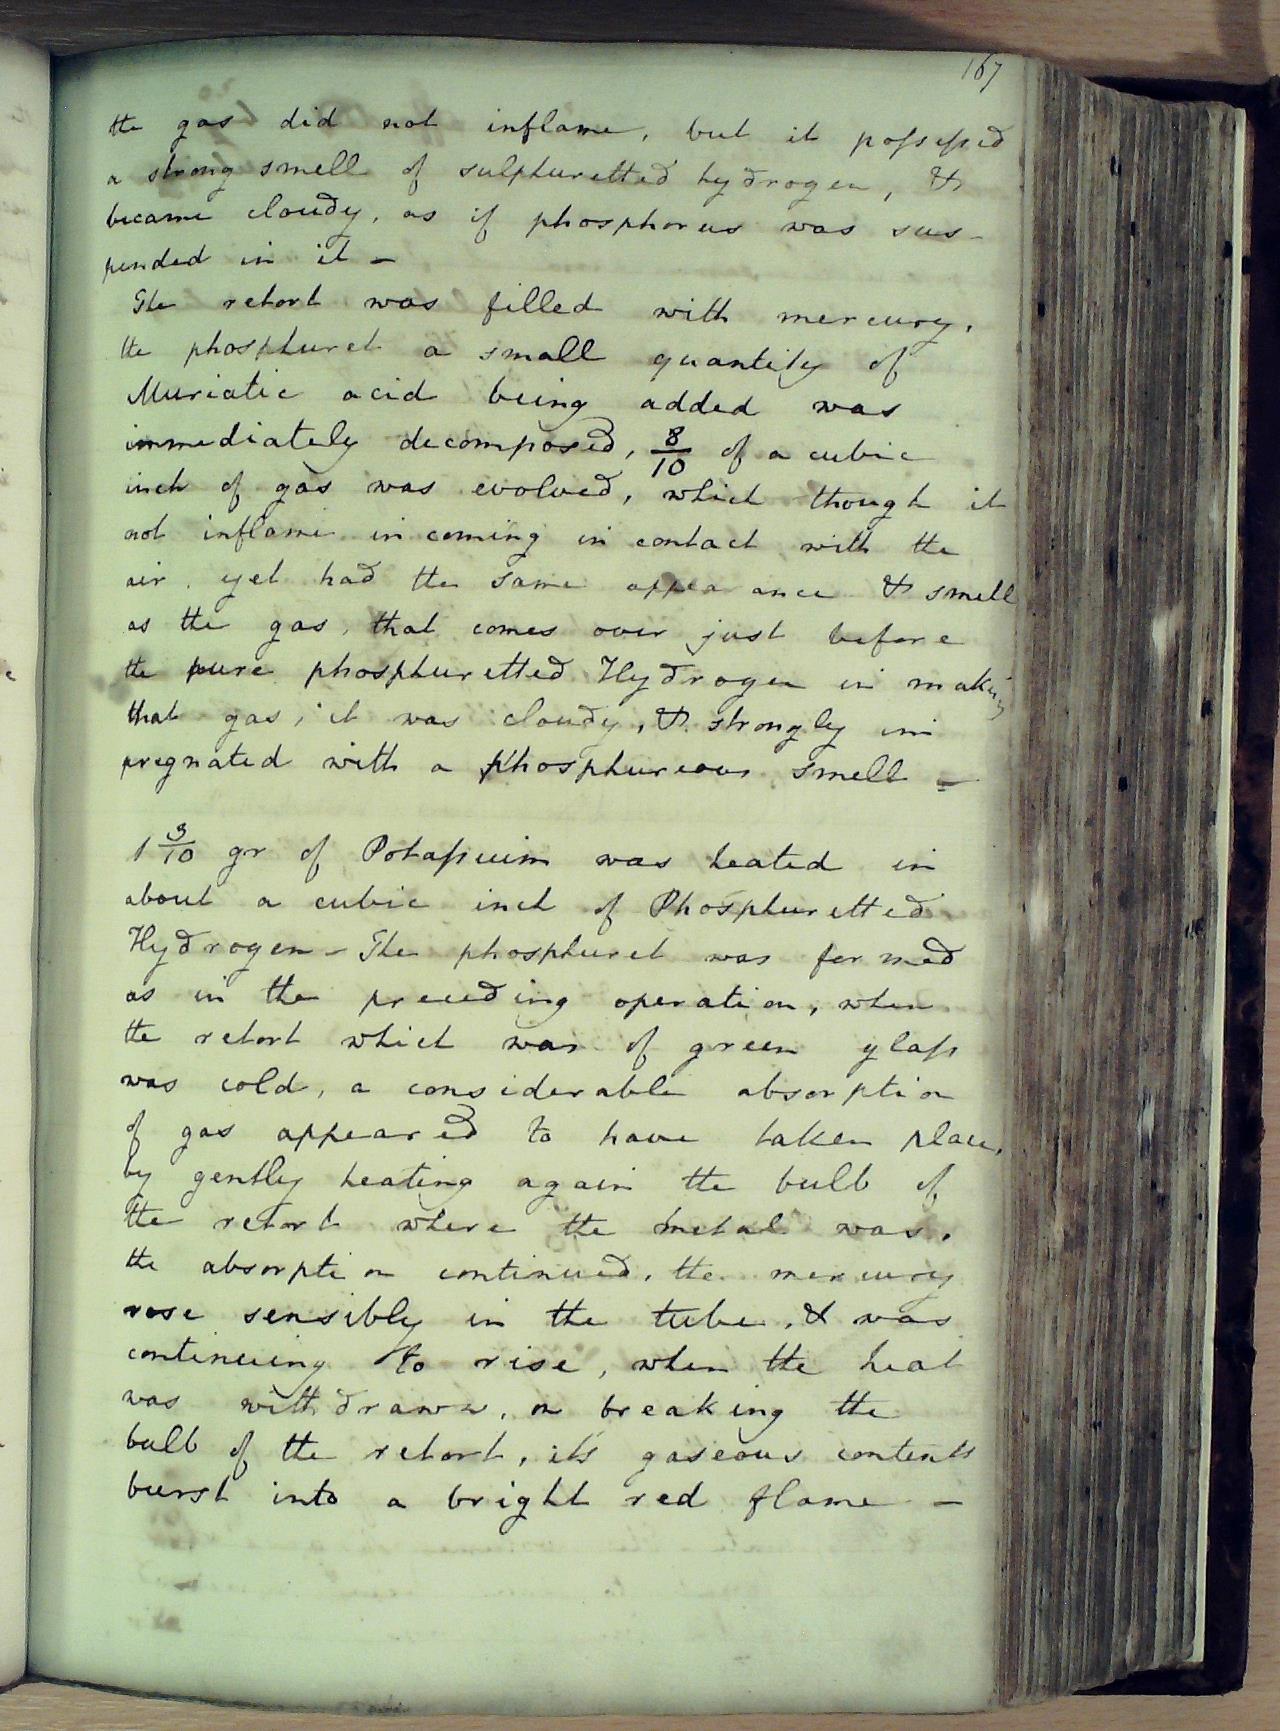 167
the gas did not inflame, but it possessed
a strong smell of sulphuretted hydrogen, &
became cloudy, as if phosphorus was sus-
pended in it -
The retort was filled with mercury,
the phosphuret a small quantity of
Muriatic acid being added was
immediately decomposed, 8/10 of a cubic
inch of gas was evolved, which though it
not inflame in coming in contact with the
air, yet had the same appearance & smell
as the gas, that comes over just before
the pure phosphuretted Hydrogen in making
that gas, it was cloudy, & strongly im
pregnated with a Phosphureous smell -
1 3/10 gr of Potassium was heated in
about a cubic inch of Phosphuretted
Hydrogen - The phosphuret was formed
as in the preceding operation, when
the retort which was of green glass
was cold, a considerable absorption
of gas appeared to have taken place,
by gently heating again the bulb of
the retort where the metal was,
the absorption continued, the mercury
rose sensibly in the tube, & was
continuing to rise, when the heat
was withdrawn, on breaking the
bulb of the retort, its gaseous contents
burst into a bright red flame -